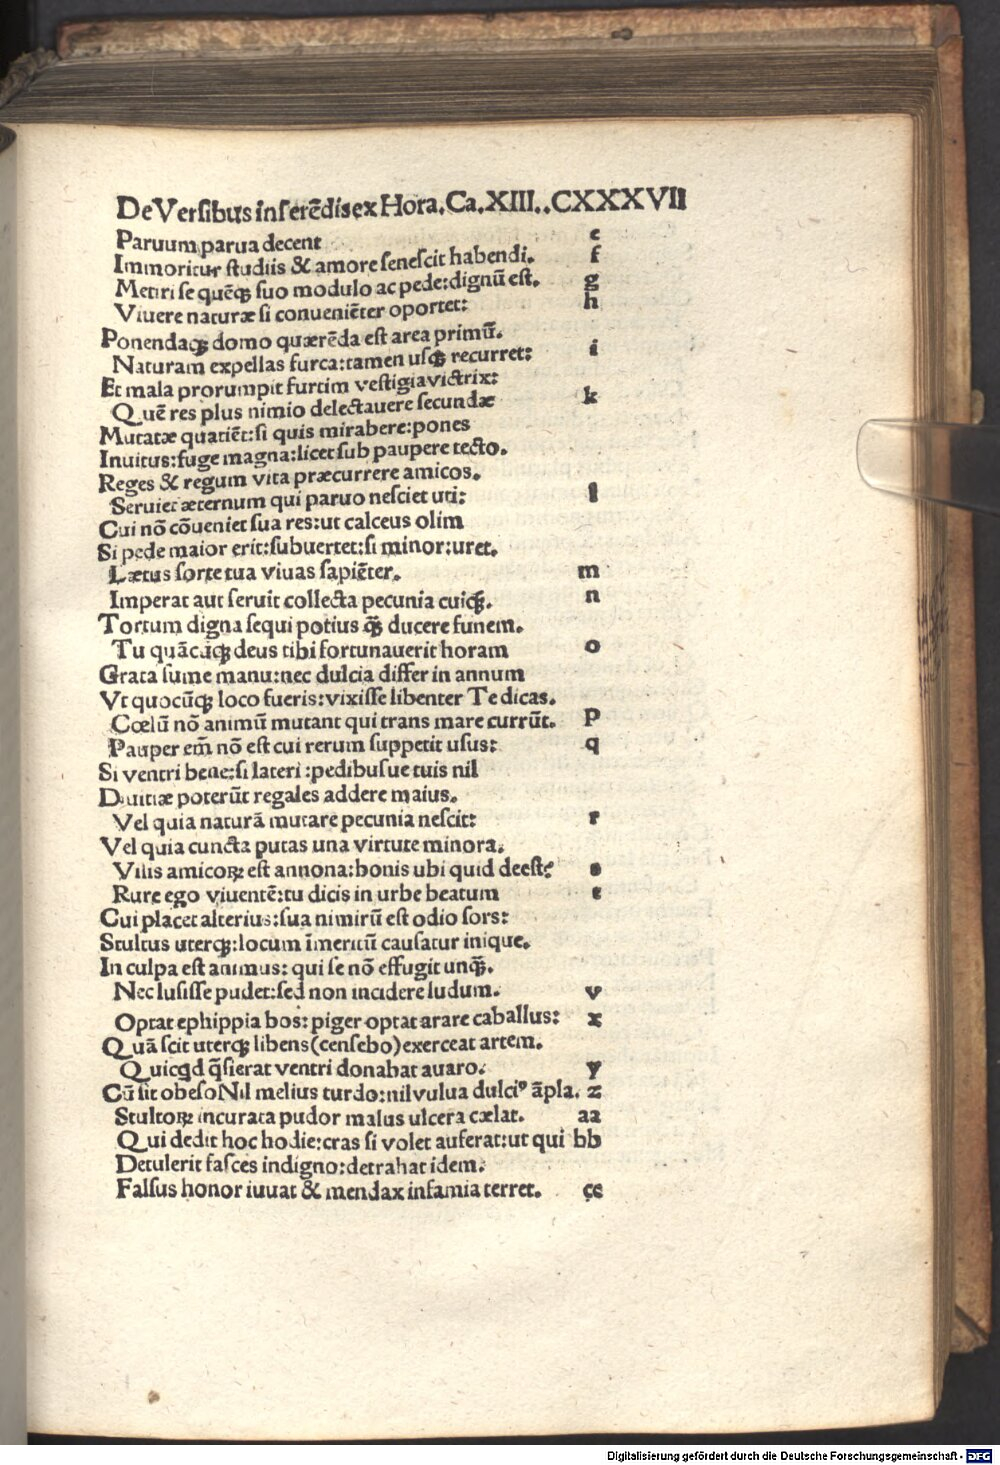 De Versibus inserēdis ex Hora. Ca. XIII.. CXXXVII
Paruum parua decent e
Immoritur studiis & amore senescit habendi. f
Metiri se quēq; suo modulo ac pede: dignū est. g
Viuere naturæ si conueniēter oportet: h
Ponendaq; domo quærēda est area primū.
Naturam expellas furca: tamen usq; recurret: i
Et mala prorumpit furtim vestigia victrix:
Quē res plus nimio delectauere secundæ k
Mutatæ quatiēt: si quis mirabere: pones
Inuitus: fuge magna: licet sub paupere tecto.
Reges & regum vita præcurrere amicos.
Seruiet æternum qui paruo nesciet uti: l
Cui nō cōueniet sua res: ut calceus olim
Si pede maior erit: subuertet: si minor: uret.
Lætus sorte tua viuas sapiēter. m
Imperat aut seruit collecta pecunia cuiq;. n
Tortum digna sequi potius q̄; ducere funem.
Tu quācūq; deus tibi fortunauerit horam o
Grata sume manu: nec dulcia differ in annum
Vt quocūq; loco fueris: vixisse libenter Te dicas.
Cœlū nō animū mutant qui trans mare currūt. p
Pauper em̄ nō est cui rerum suppetit usus: q
Si ventri bene: si lateri : pedibusue tuis nil
Diuitiæ poterūt regales addere maius.
Vel quia naturā mutare pecunia nescit: r
Vel quia cuncta putas una virtute minora.
Vilis amicoꝝ est annona: bonis ubi quid deest: s
Rure ego viuentē: tu dicis in urbe beatum t
Cui placet alterius: sua nimirū est odio sors:
Stultus uterq;: locum īmeritū causatur inique.
In culpa est animus: qui se nō effugit unq̄;.
Nec lusisse pudet: sed non incidere ludum. v
Optat ephippia bos: piger optat arare caballus: x
Quā scit uterq; libens (censebo) exerceat artem.
Quicqd q̄sierat ventri donabat auaro. y
Cū sit obeso Nil melius turdo: nil vulua dulciꝰ āpla. z
Stultoꝝ incurata pudor malus ulcera cælat. aa
Qui dedit hoc hodie: cras si volet auferat: ut qui bb
Detulerit fasces indigno: detrahat idem.
Falsus honor iuuat & mendax infamia terret. cc
Digitalisierung gefördert durch die Deutsche Forschungsgemeinschaft - DFG